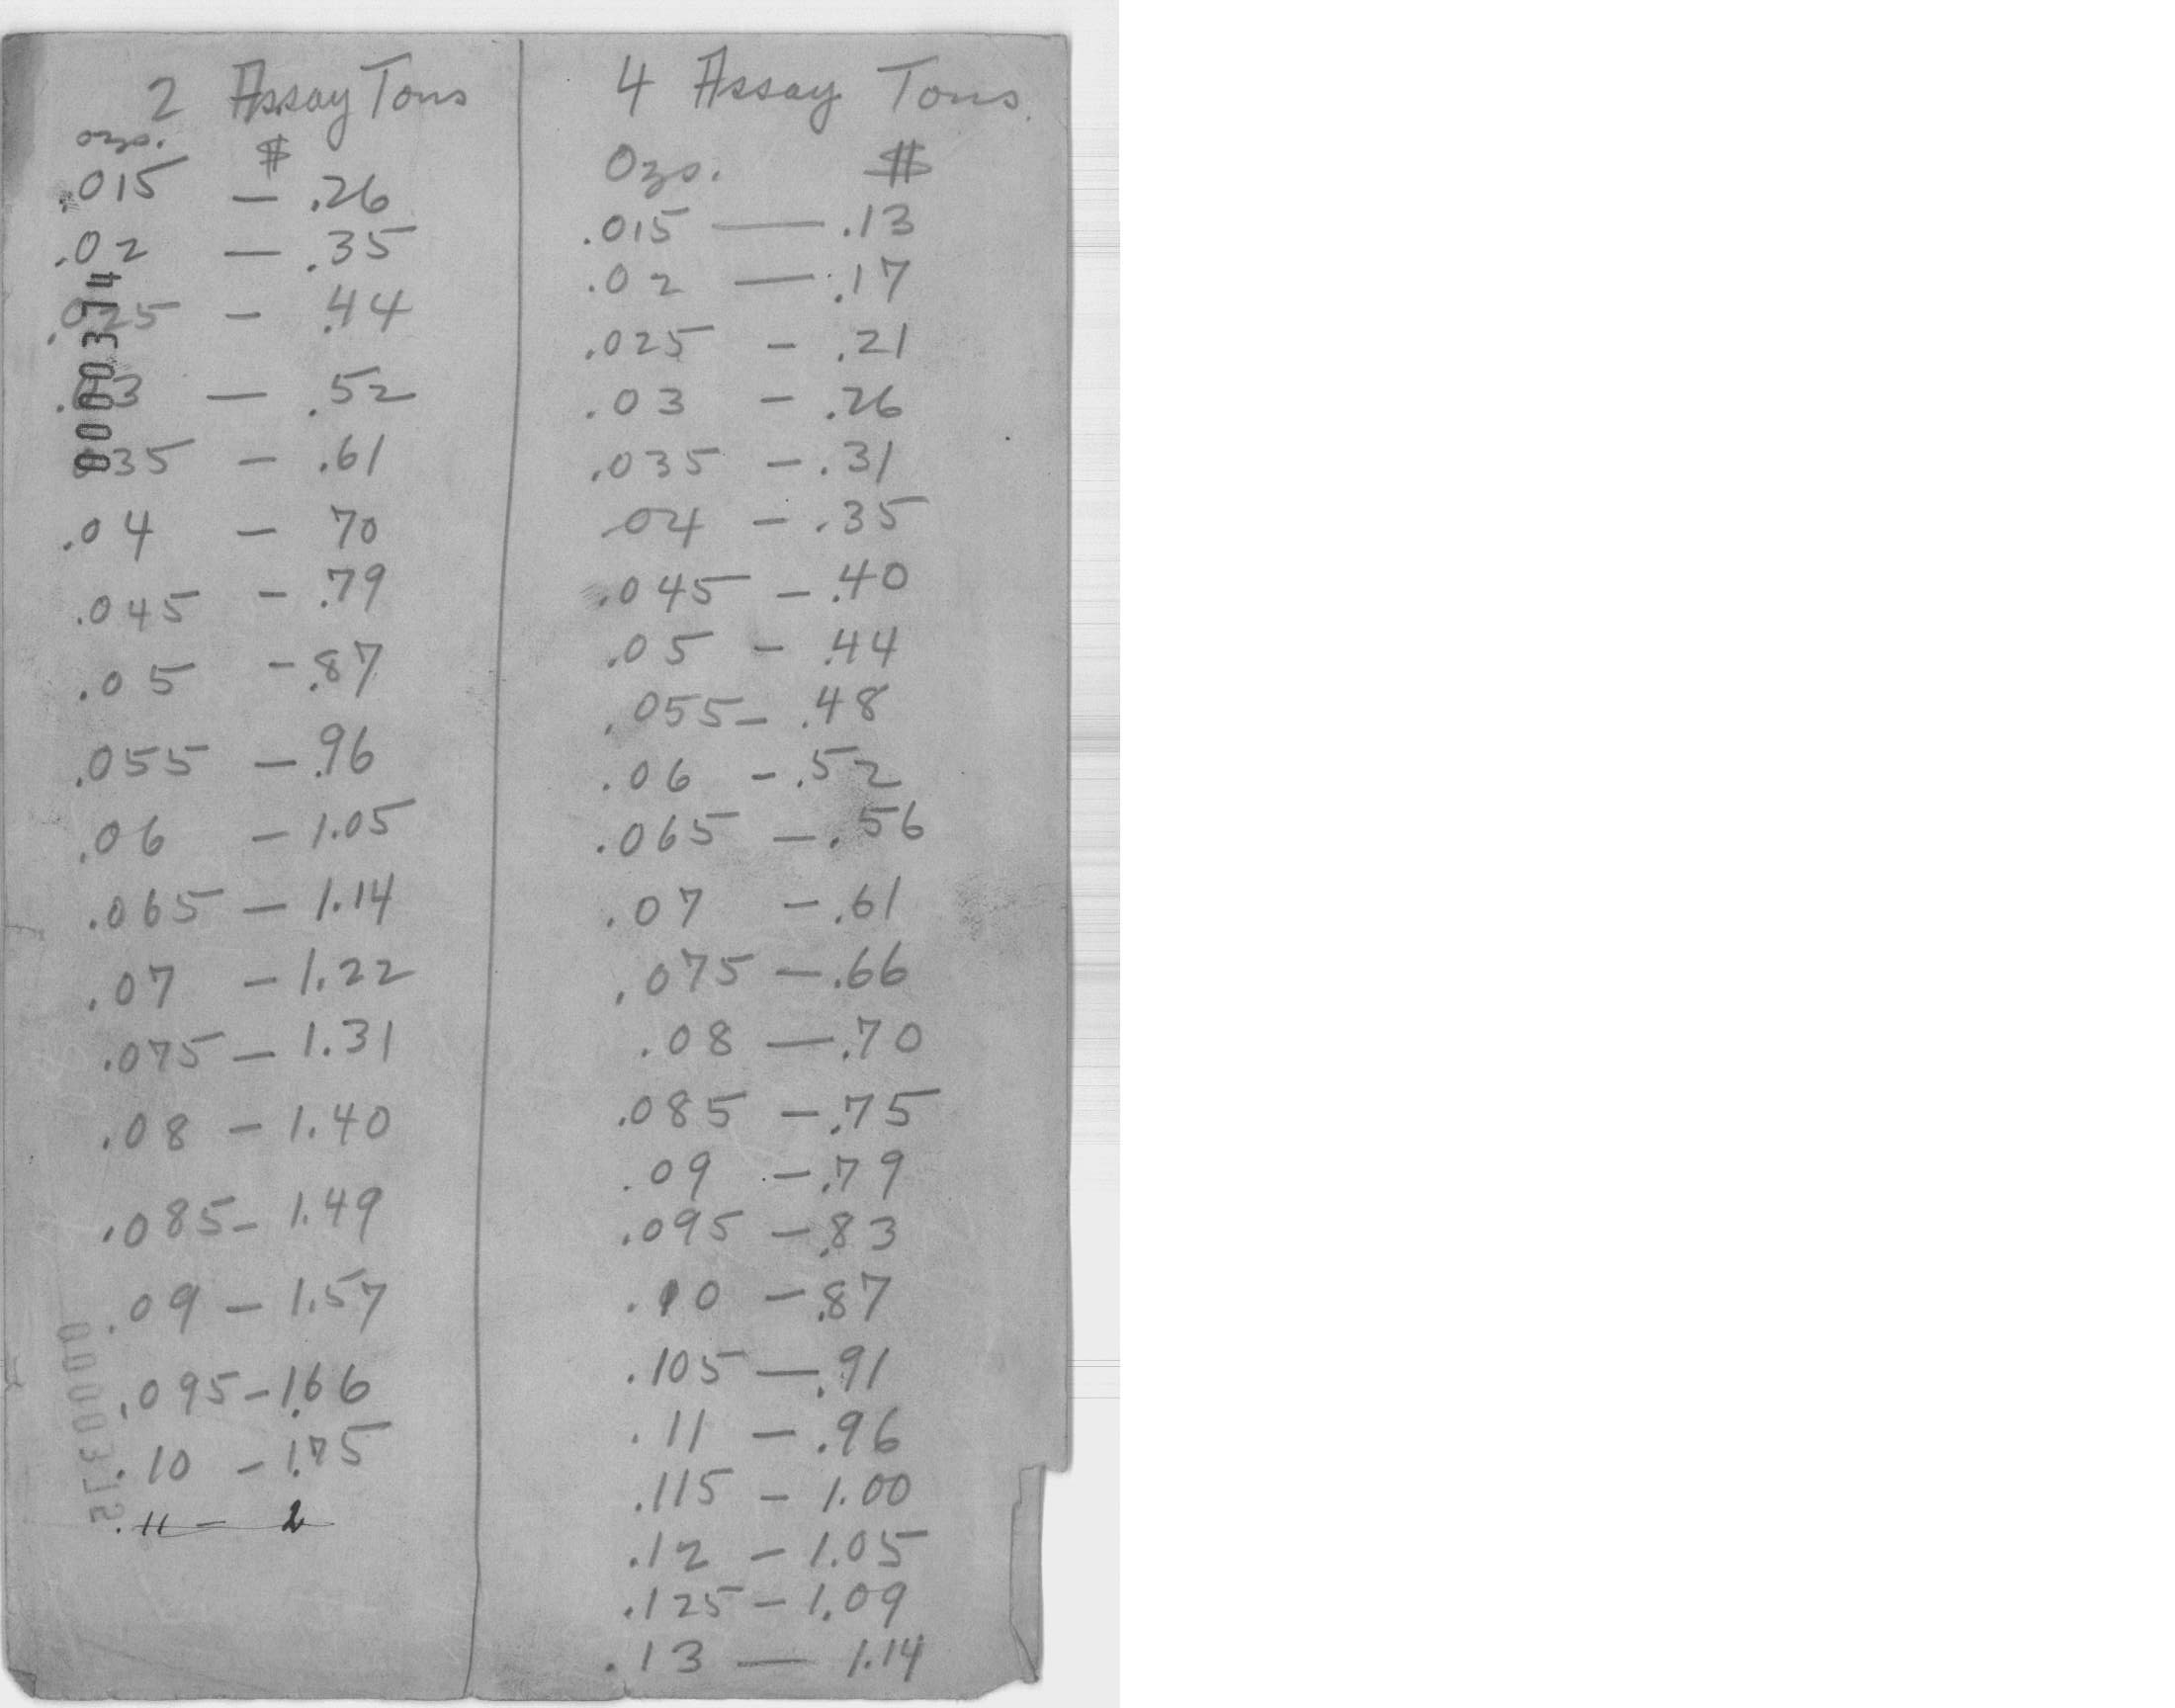 2 Assay Tons
ozs. $
.015 — .26
.02 — .35
.025 — .44
.03 — .52
035 — .61
.04 — 70
.045 — .79
.05 — .87
.055 — .96
.06 — 1.05
.065 — 1.14
.07 — 1.22
.075 — 1.31
.08 — 1.40
.085 — 1.49
.09 — 1.57
.095 — 1.66
.10 — 1.75
.11 — 2
4 Assay Tons.
Ozs. $
.015 — .13
.02 — .17
.025 — .21
.03 — .26
.035 — .31
.04 — .35
.045 — .40
.05 — .44
.055 — .48
.06 — .52
.065 — .56
.07 — .61
.075 — .66
.08 — .70
.085 — .75
.09 — .79
.095 — .83
.10 — .87
.105 — .91
.11 — .96
.115 — 1.00
.12 — 1.05
.125 — 1.09
.13 — 1.14